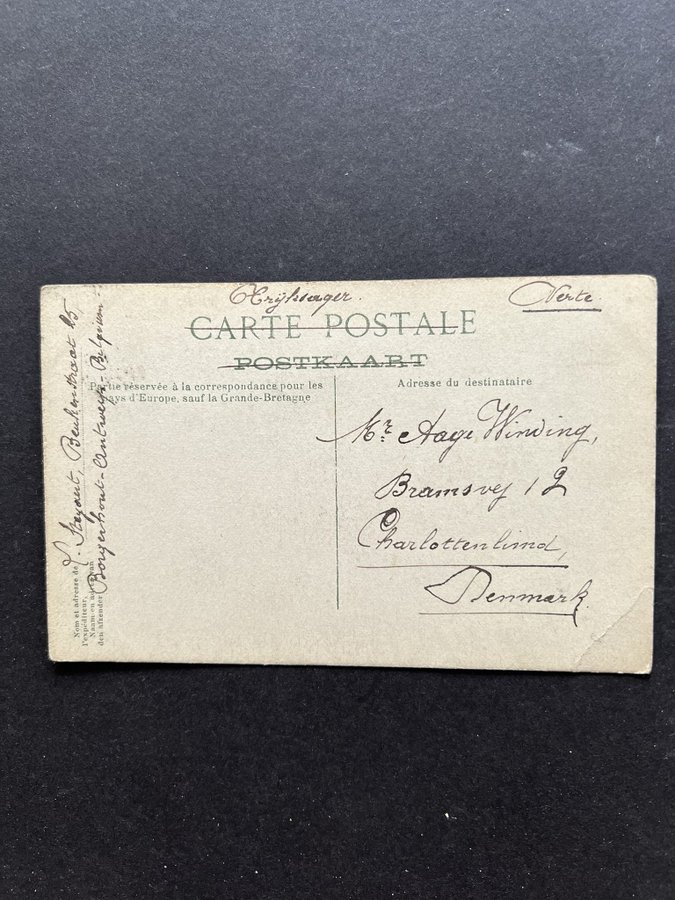 Tryksager.
Verte
CARTE POSTALE
POSTKAART
Partie réservée à la correspondance pour les
pays d'Europe, sauf la Grande-Bretagne
Adresse du destinataire
Mr. Aage Winding,
Bramsvej 12
Charlottenlund,
Denmark.
Beukenstraat 25
Borgerhout-Antwerpen-Belgium
Nom et adresse de
l'expéditeur.
Naam en adres van
den afzender